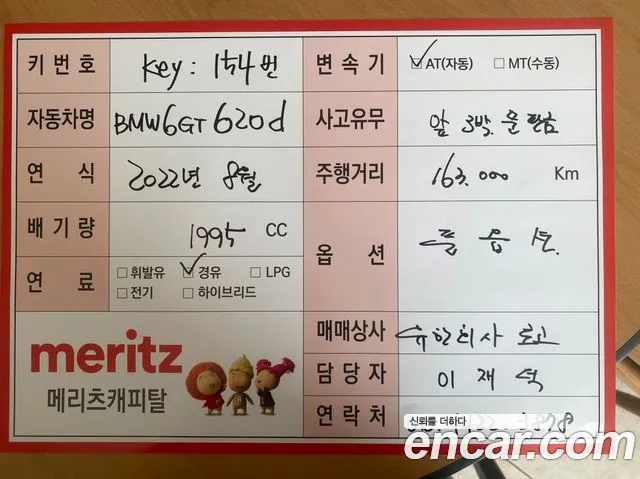 키번호 Key: 154번 변속기 ☑AT(자동) ☐MT(수동)
자동차명 BMW6GT 620d 사고유무 앞 3박. 문
연 식 2022년 8월 주행거리 163.000 Km
배기량 1995 CC 옵 션 풀 옵션.
연 료 ☐휘발유 ☑경유 ☐LPG
☐전기 ☐하이브리드
meritz 매매상사
메리츠캐피탈 담당자 이재석
연락처
신뢰를 더하다
encar.com